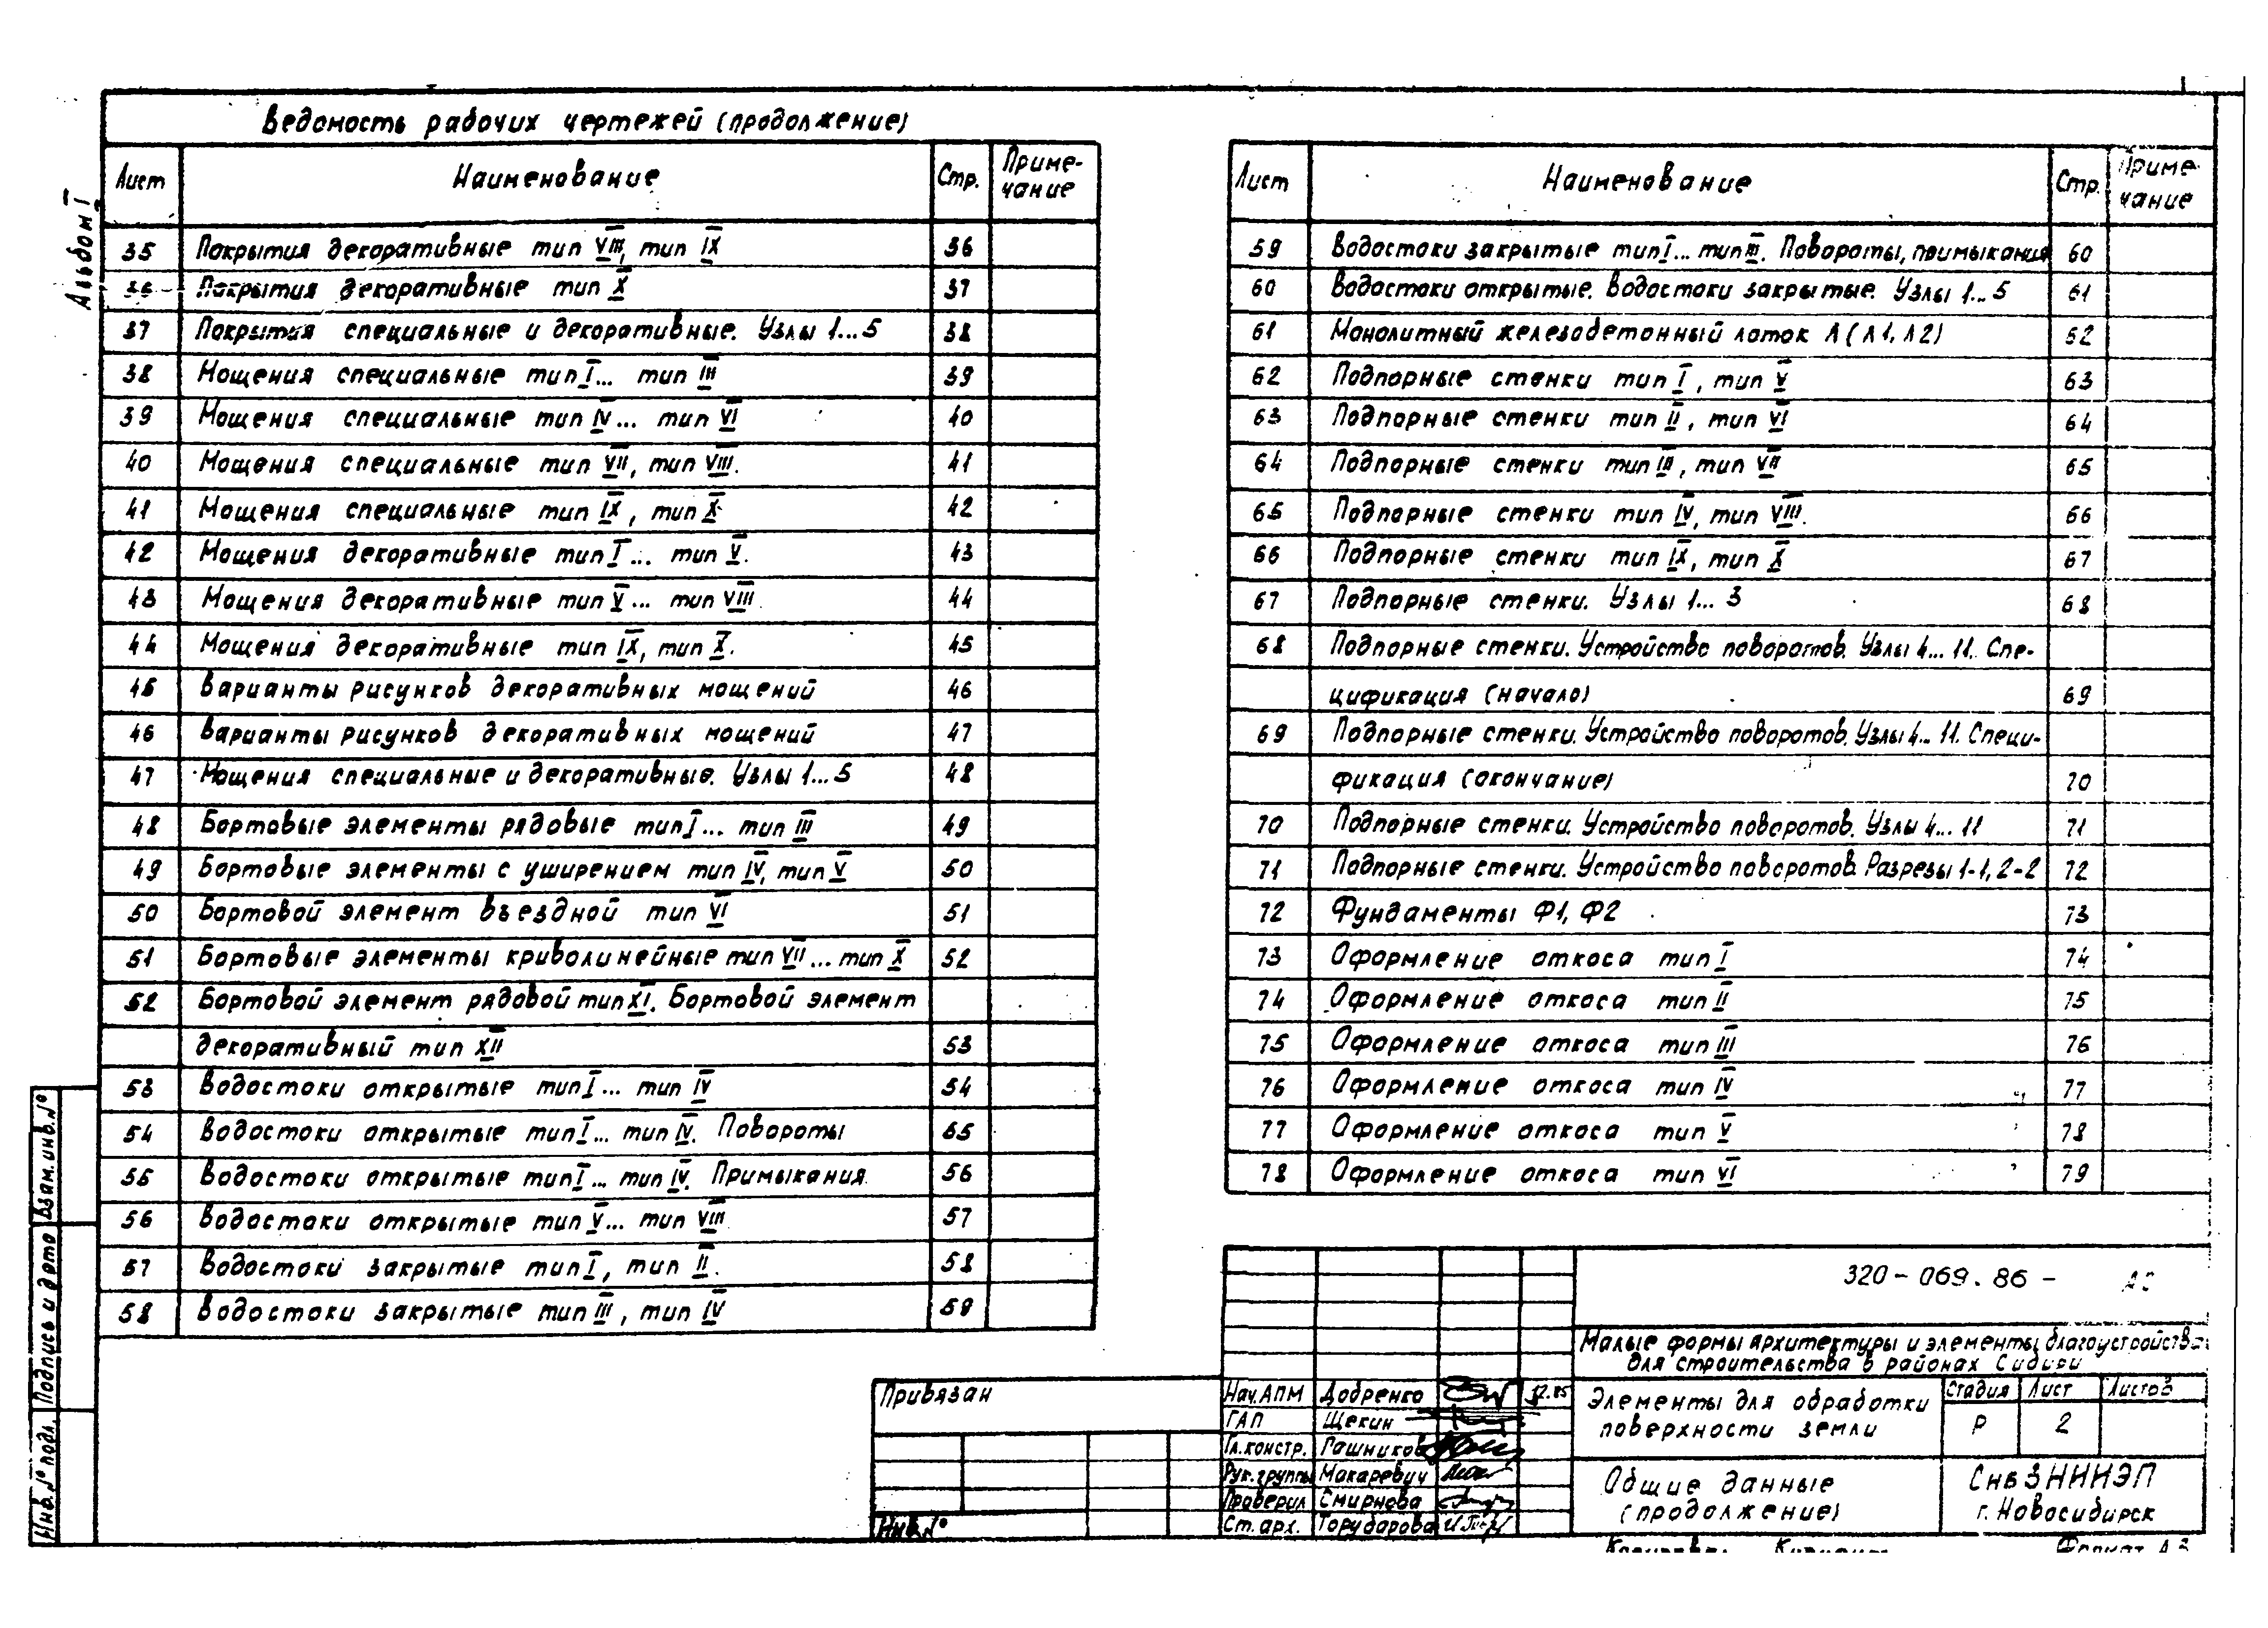 Альбом I
Ведомость рабочих чертежей (продолжение)
Лист Наименование Стр. Приме-
чание
35 Покрытия декоративные тип VIII, тип IX 36
36 Покрытия декоративные тип X 37
37 Покрытия специальные и декоративные. Узлы 1...5 38
38 Мощения специальные тип I... тип III 39
39 Мощения специальные тип IV... тип VI 40
40 Мощения специальные тип VII, тип VIII. 41
41 Мощения специальные тип IX, тип X 42
42 Мощения декоративные тип I... тип V. 43
43 Мощения декоративные тип V... тип VIII 44
44 Мощения декоративные тип IX, тип X. 45
45 Варианты рисунков декоративных мощений 46
46 Варианты рисунков декоративных мощений 47
47 Мощения специальные и декоративные. Узлы 1...5 48
48 Бортовые элементы рядовые тип I... тип III 49
49 Бортовые элементы с уширением тип IV, тип V 50
50 Бортовой элемент въездной тип VI 51
51 Бортовые элементы криволинейные тип VII... тип X 52
52 Бортовой элемент рядовой тип XI. Бортовой элемент
декоративный тип XII 53
53 Водостоки открытые тип I... тип IV 54
54 Водостоки открытые тип I... тип IV. Повороты 55
55 Водостоки открытые тип I... тип IV. Примыкания 56
56 Водостоки открытые тип V... тип VIII 57
57 Водостоки закрытые тип I, тип II. 58
58 Водостоки закрытые тип III, тип IV 59
Лист Наименование Стр. Приме-
чание
59 Водостоки закрытые тип I... тип III. Повороты, примыкания 60
60 Водостоки открытые. Водостоки закрытые. Узлы 1...5 61
61 Монолитный железобетонный лоток Л (Л1, Л2) 62
62 Подпорные стенки тип I, тип V 63
63 Подпорные стенки тип II, тип VI 64
64 Подпорные стенки тип III, тип VII 65
65 Подпорные стенки тип IV, тип VIII. 66
66 Подпорные стенки тип IX, тип X 67
67 Подпорные стенки. Узлы 1...3 68
68 Подпорные стенки. Устройство поворотов. Узлы 4...11. Спе-
цификация (начало) 69
69 Подпорные стенки. Устройство поворотов. Узлы 4...11. Специ-
фикация (окончание) 70
70 Подпорные стенки. Устройство поворотов. Узлы 4...11 71
71 Подпорные стенки. Устройство поворотов. Разрезы 1-1, 2-2 72
72 Фундаменты Ф1, Ф2 73
73 Оформление откоса тип I 74
74 Оформление откоса тип II 75
75 Оформление откоса тип III 76
76 Оформление откоса тип IV 77
77 Оформление откоса тип V 78
78 Оформление откоса тип VI 79
Взам. инв. №
Подпись и дата
Инв. № подл.
Привязан
Инв. №
320-069.86-
Малые формы архитектуры и элементы благоустройства
для строительства в районах Сибири
Нач. АПМ Добренко 12.85
ГАП Щекин
Гл. констр. Гашников
Рук. группы Макаревич
Проверил Смирнова
Ст. арх. Торубарова
Элементы для обработки
поверхности земли
Стадия Лист Листов
Р 2
Общие данные
(продолжение)
СибЗНИИЭП
г. Новосибирск
Формат А3